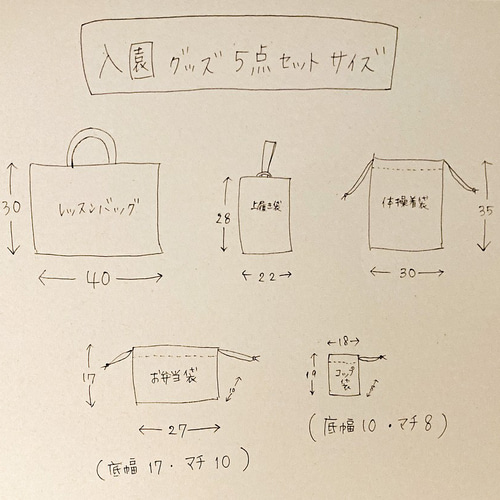 入園 グッズ 5点セット サイズ
レッスンバッグ
30
40
上履き袋
28
22
体操着袋
35
30
お弁当袋
17
27
(底幅 17・マチ 10)
コップ
袋
18
19
(底幅 10・マチ 8)